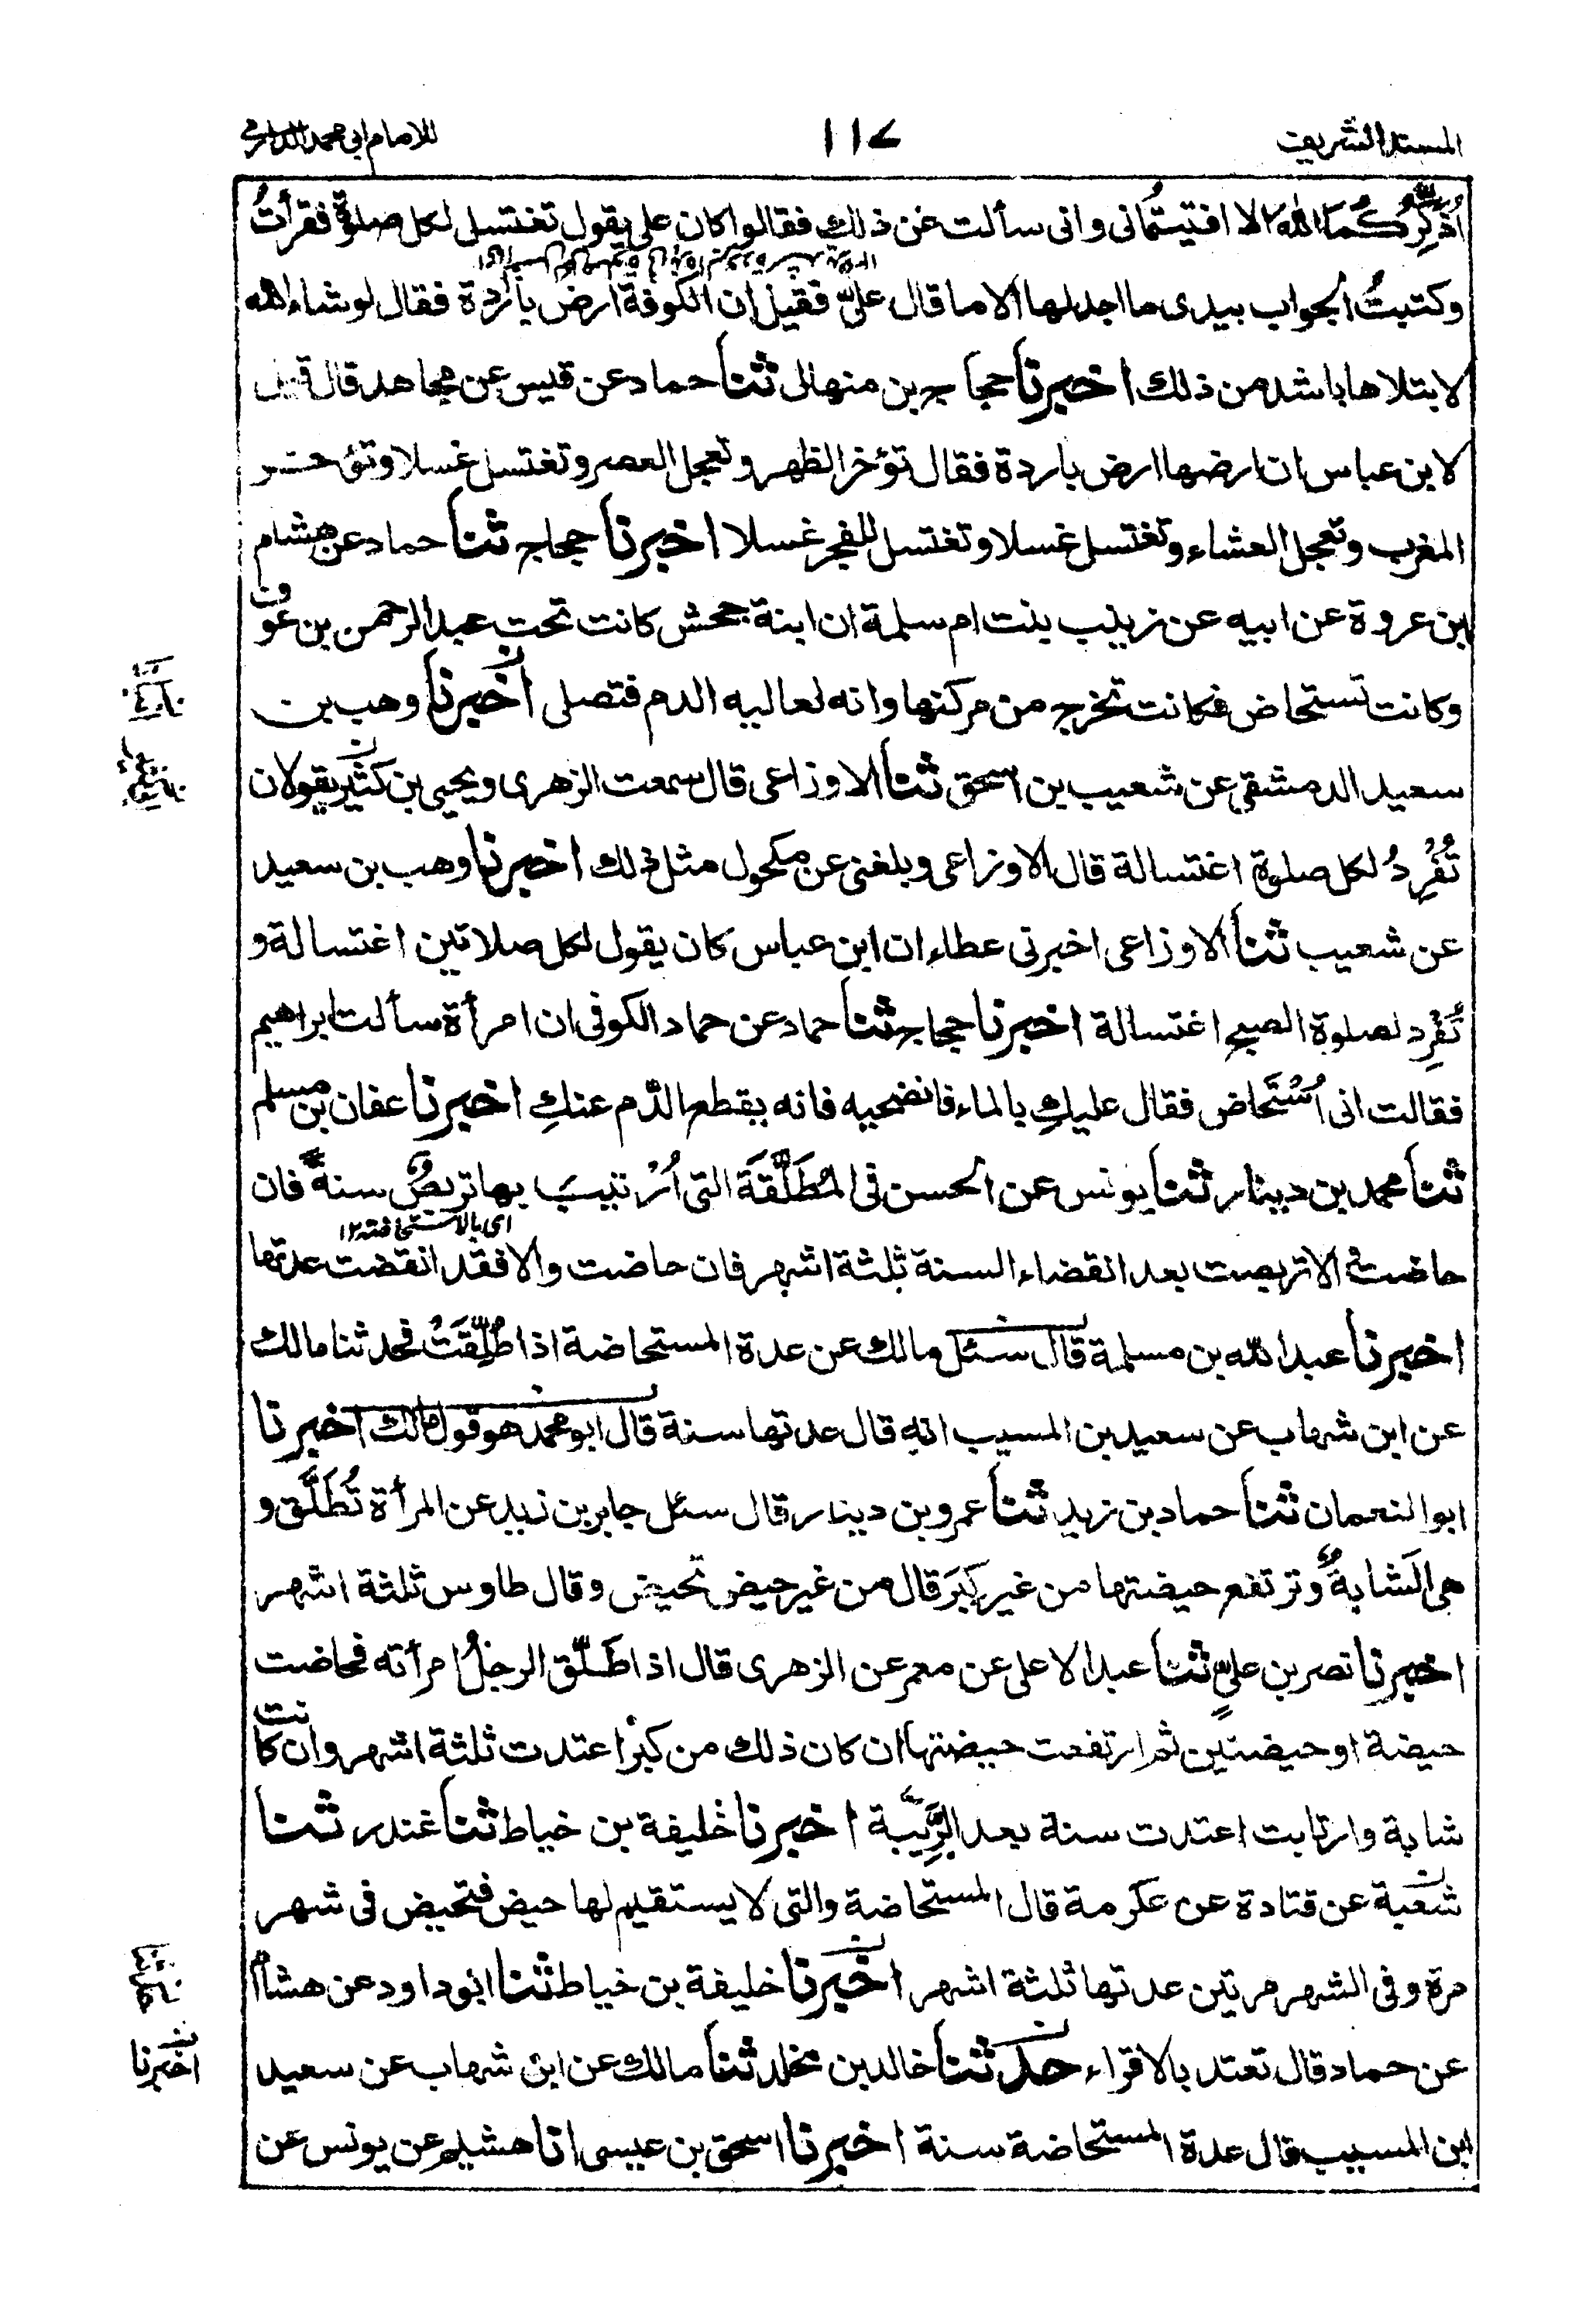 المسند الشريف ١١٧ للامام ابي محمد الدارمي
اُذَكِّرُكُمَا اللّٰهَ الا افتيتُمانی وانی سألت عن ذلك فقالوا كان علی يقول تغتسل لكل صلوة فقرأتُ
وكتبتُ الجواب بيدی ما اجد لها الا ما قال علیّ فقيل ان الكوفة ارض باردة فقال لو شاء الله
لابتلاها باشد من ذلك اخبرنا حجاج بن منهال ثنا حماد عن قيس عن مجاهد قال قيل
لابن عباس ان ارضها ارض باردة فقال تؤخر الظهر وتعجل العصر وتغتسل غسلا وتؤخر
المغرب وتعجل العشاء وتغتسل غسلا وتغتسل للفجر غسلا اخبرنا حجاج ثنا حماد عن هشام
ابن عروة عن ابيه عن زينب بنت ام سلمة ان ابنة جحش كانت تحت عبد الرحمن بن عوف
وكانت تستحاض فكانت تخرج من مركنها وانه لعاليه الدم فتصلی اخبرنا وهب بن
سعيد الدمشقی عن شعيب بن اسحق ثنا الاوزاعی قال سمعت الزهری ويحيی بن كثير يقولان
تُفْرِدُ لكل صلوة اغتسالة قال الاوزاعی وبلغنی عن مكحول مثل ذلك اخبرنا وهب بن سعيد
عن شعيب ثنا الاوزاعی اخبرنی عطاء ان ابن عباس كان يقول لكل صلاتين اغتسالة و
تُفْرِد لصلوة الصبح اغتسالة اخبرنا حجاج ثنا حماد عن حماد الكوفی ان امرأة سألت ابراهيم
فقالت انی اُسْتَحاض فقال عليكِ بالماء فانضحيه فانه يقطع الدم عنكِ اخبرنا عفان بن مسلم
ثنا محمد بن دينار ثنا يونس عن الحسن فی المُطَلَّقَة التی اُرْتيبَ بها تربصُ سنةً فان
ای بالاستحاضة ١٢
حاضت والا تربصت بعد انقضاء السنة ثلثة اشهر فان حاضت والا فقد انقضت عدتها
اخبرنا عبد الله بن مسلمة قال سئل مالك عن عدة المستحاضة اذا طُلِّقَتْ فحدثنا مالك
عن ابن شهاب عن سعيد بن المسيب انه قال عدتها سنة قال ابو محمد هو قول مالك اخبرنا
ابو النعمان ثنا حماد بن زيد ثنا عمرو بن دينار قال سئل جابر بن زيد عن المرأة تُطَلَّق و
هی الشابةُ وترتفع حيضتها من غير كِبَر قال من غير حيض تحيض وقال طاوس ثلثة اشهر
اخبرنا نصر بن علیٍّ ثنا عبد الاعلی عن معمر عن الزهری قال اذا طَلَّق الرجلُ امرأته فحاضت
حيضة او حيضتين ثم ارتفعت حيضتها ان كان ذلك من كبر اعتدت ثلثة اشهر وان كانت
شابة وارتابت اعتدت سنة بعد الرِّيبة اخبرنا خليفة بن خياط ثنا غندر ثنا
شعبة عن قتادة عن عكرمة قال المستحاضة والتی لا يستقيم لها حيض فتحيض فی شهر
مرة وفی الشهر مرتين عدتها ثلثة اشهر اخبرنا خليفة بن خياط ثنا ابو داود عن هشام
عن حماد قال تعتد بالاقراء حدثنا خالد بن مخلد ثنا مالك عن ابن شهاب عن سعيد
اخبرنا
ابن المسيب قال عدة المستحاضة سنة اخبرنا اسحق بن عيسی انا هشيم عن يونس عن